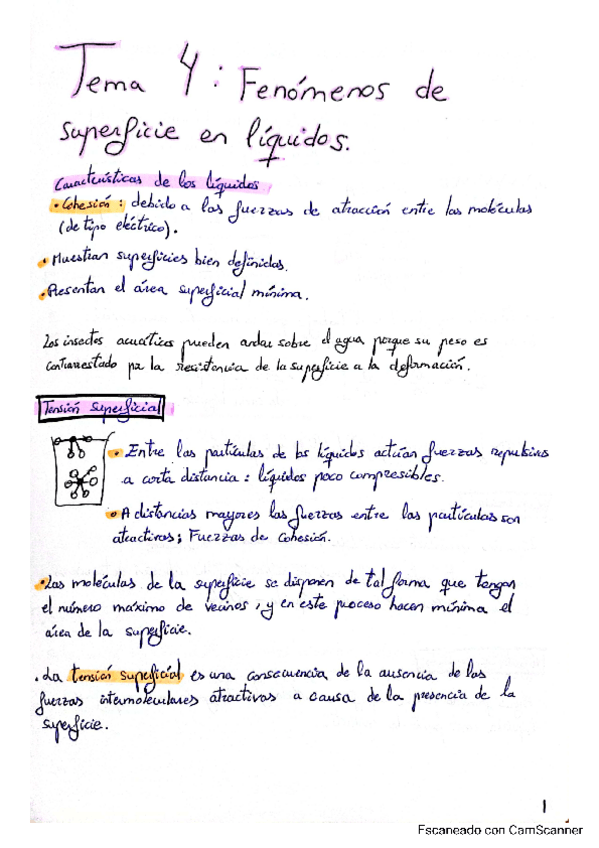 Tema 4: Fenómenos de
superficie en líquidos.
Características de los líquidos
• Cohesión: debido a las fuerzas de atracción entre las moléculas
(de tipo eléctrico).
• Muestran superficies bien definidas.
• Presentan el área superficial mínima.
Los insectos acuáticos pueden andar sobre el agua porque su peso es
contrarrestado por la resistencia de la superficie a la deformación.
Tensión superficial
• Entre las partículas de los líquidos actúan fuerzas repulsivas
a corta distancia: líquidos poco compresibles.
• A distancias mayores las fuerzas entre las partículas son
atractivas; Fuerzas de cohesión.
• Las moléculas de la superficie se disponen de tal forma que tengan
el número máximo de vecinos, y en este proceso hacen mínima el
área de la superficie.
. La tensión superficial es una consecuencia de la ausencia de las
fuerzas intermoleculares atractivas a causa de la presencia de la
superficie.
1
Escaneado con CamScanner